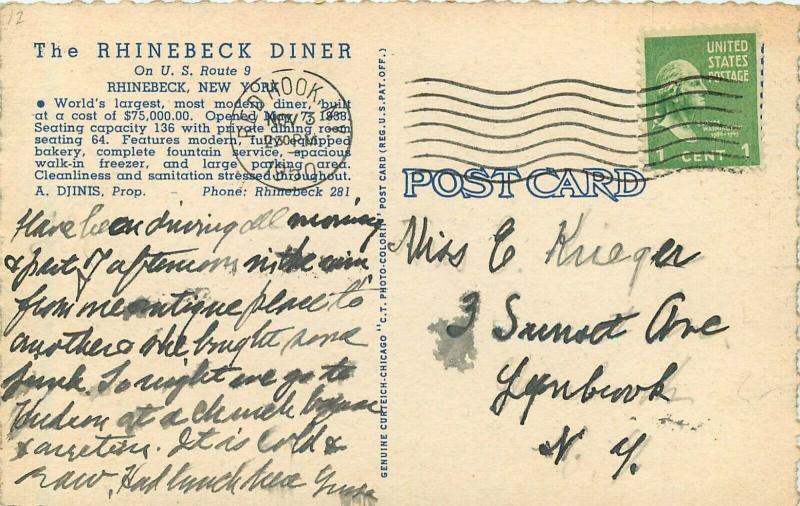 12
The RHINEBECK DINER
On U. S. Route 9
RHINEBECK, NEW YORK
● World's largest, most modern diner, built
at a cost of $75,000.00. Opened May 7, 1938.
Seating capacity 136 with private dining room
seating 64. Features modern fully equipped
bakery, complete fountain service, spacious
walk-in freezer, and large parking area.
Cleanliness and sanitation stressed throughout.
A. DJINIS, Prop. Phone: Rhinebeck 281
RED HOOK
NOV 3
230PM
Have been driving all morning
& part of afternoon in the rain
from one antique place to
another & she bought some
junk. Tonight we go to
Hudson at a church bazaar
& auction. It is cold &
raw. Had lunch here
GENUINE CURTEICH-CHICAGO "C.T. PHOTO-COLORIT" POST CARD (REG. U.S. PAT. OFF.)
UNITED
STATES
POSTAGE
1 CENT 1
POST CARD
Miss C Krueger
3 Sunset Ave
Lynbrook
N. Y.